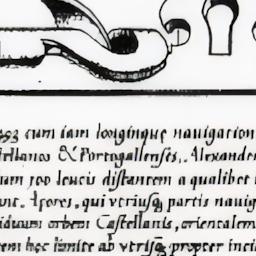 493 cum iam longinque nauigation
tellanos & Portogallenses, Alexander
um 100 leucis distantem a qualibet
unc. Açores, qui veriusq partis nauig
iduum orbem Castellanis, orientalem
em hęc limite ab vtrisq propter inci